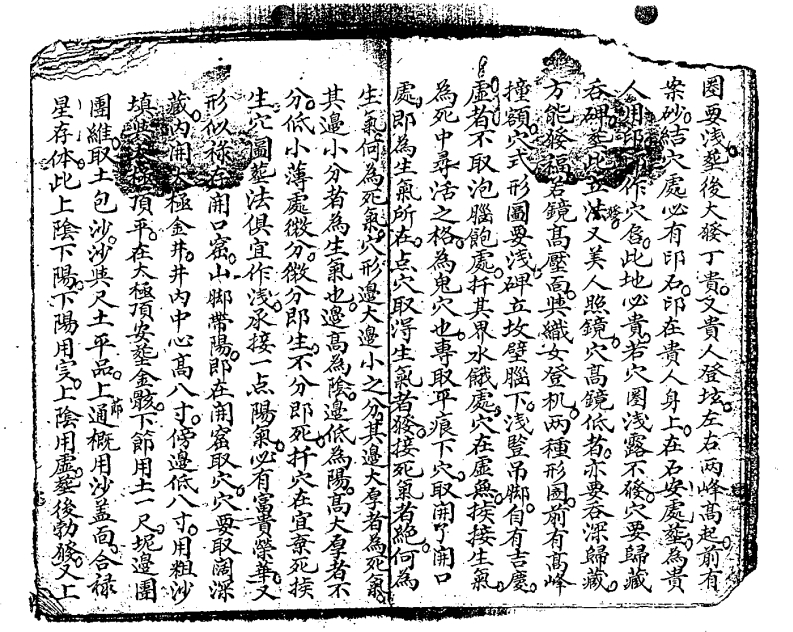 圏要浅葬後大發丁貴又貴人登垓左右两峰髙起前有
案砂結穴處必有印石印在貴人身上在石安處葬為貴
人用印 作穴 此地必貴若穴圏浅露不發穴要歸藏
吞碑葬此立法又美人照鏡穴髙鏡低者亦要吞深歸藏
方能發福若鏡髙壓面與織女登机两種形圖前有髙峰
撞額穴式形圖要浅碑立坟壁腦下浅竪吊脚自有吉慶
虚者不取泡腦飽處扦其界水餓處穴在虚無挨接生氣
為死中尋活之格為鬼穴也専取平痕下穴取開了開口
處即為生氣所在点穴取淂生氣者發接死氣者絕何為
生氣何為死氣穴形邊大邊小之分其邊大厚者為死氣
其邊小分者為生氣也邊髙為陰邊低為陽髙大厚者不
分低小薄處微分微分即生不分即死扦穴在宜棄死挨
生穴圖葬法俱宜作浅承接一点陽氣必有富貴榮華又
形似禄存開口窟山脚帶陽即在開窟取穴穴要取闊深
藏内開 極金井井内中心髙八寸傍邊低八寸用粗沙
填 極頂平在太極頂安葬金骸下節用土一尺坭邊圍
團維取土包沙沙與尺土平品上節通概用沙盖面合禄
星存体此上陰下陽下陽用実上陰用虚葬後勃發又上